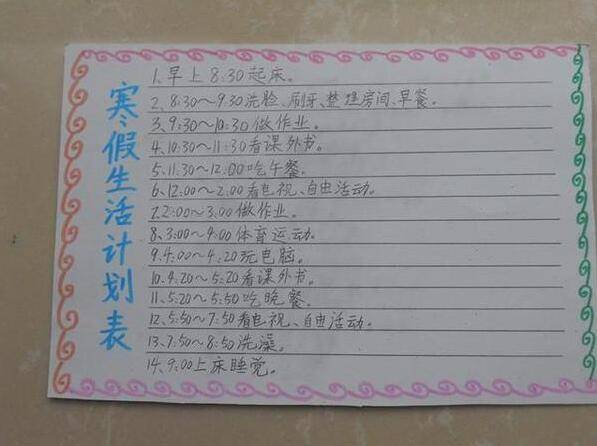 寒假生活计划表
1.早上8:30起床。
2、8:30～9:30洗脸、刷牙、整理房间、早餐。
3、9:30～10:30做作业。
4、10:30～11:30看课外书。
5、11:30～12:00吃午餐。
6、12:00～2:00看电视、自由活动。
7.2:00～3:00做作业。
8、3:00～4:00体育运动。
9.4:00～4:20玩电脑。
10.4:20～5:20看课外书。
11、5:20～5:50吃晚餐。
12、5:50～7:50看电视、自由活动。
13、7:50～8:50洗澡。
14、9:00上床睡觉。